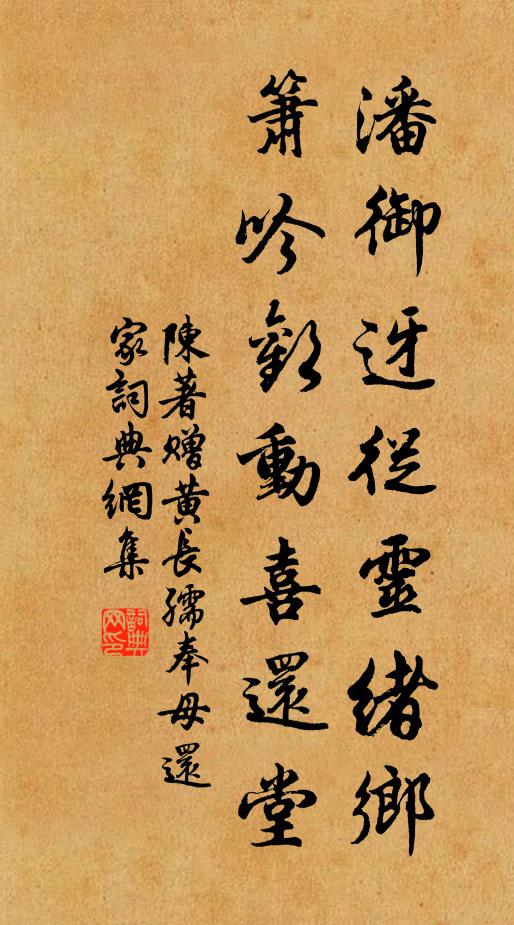 潘御迓從靈緒鄉
簫吟歡動喜還堂
陳著贈黃長孺奉母還
家詞典網集
詞典
网印